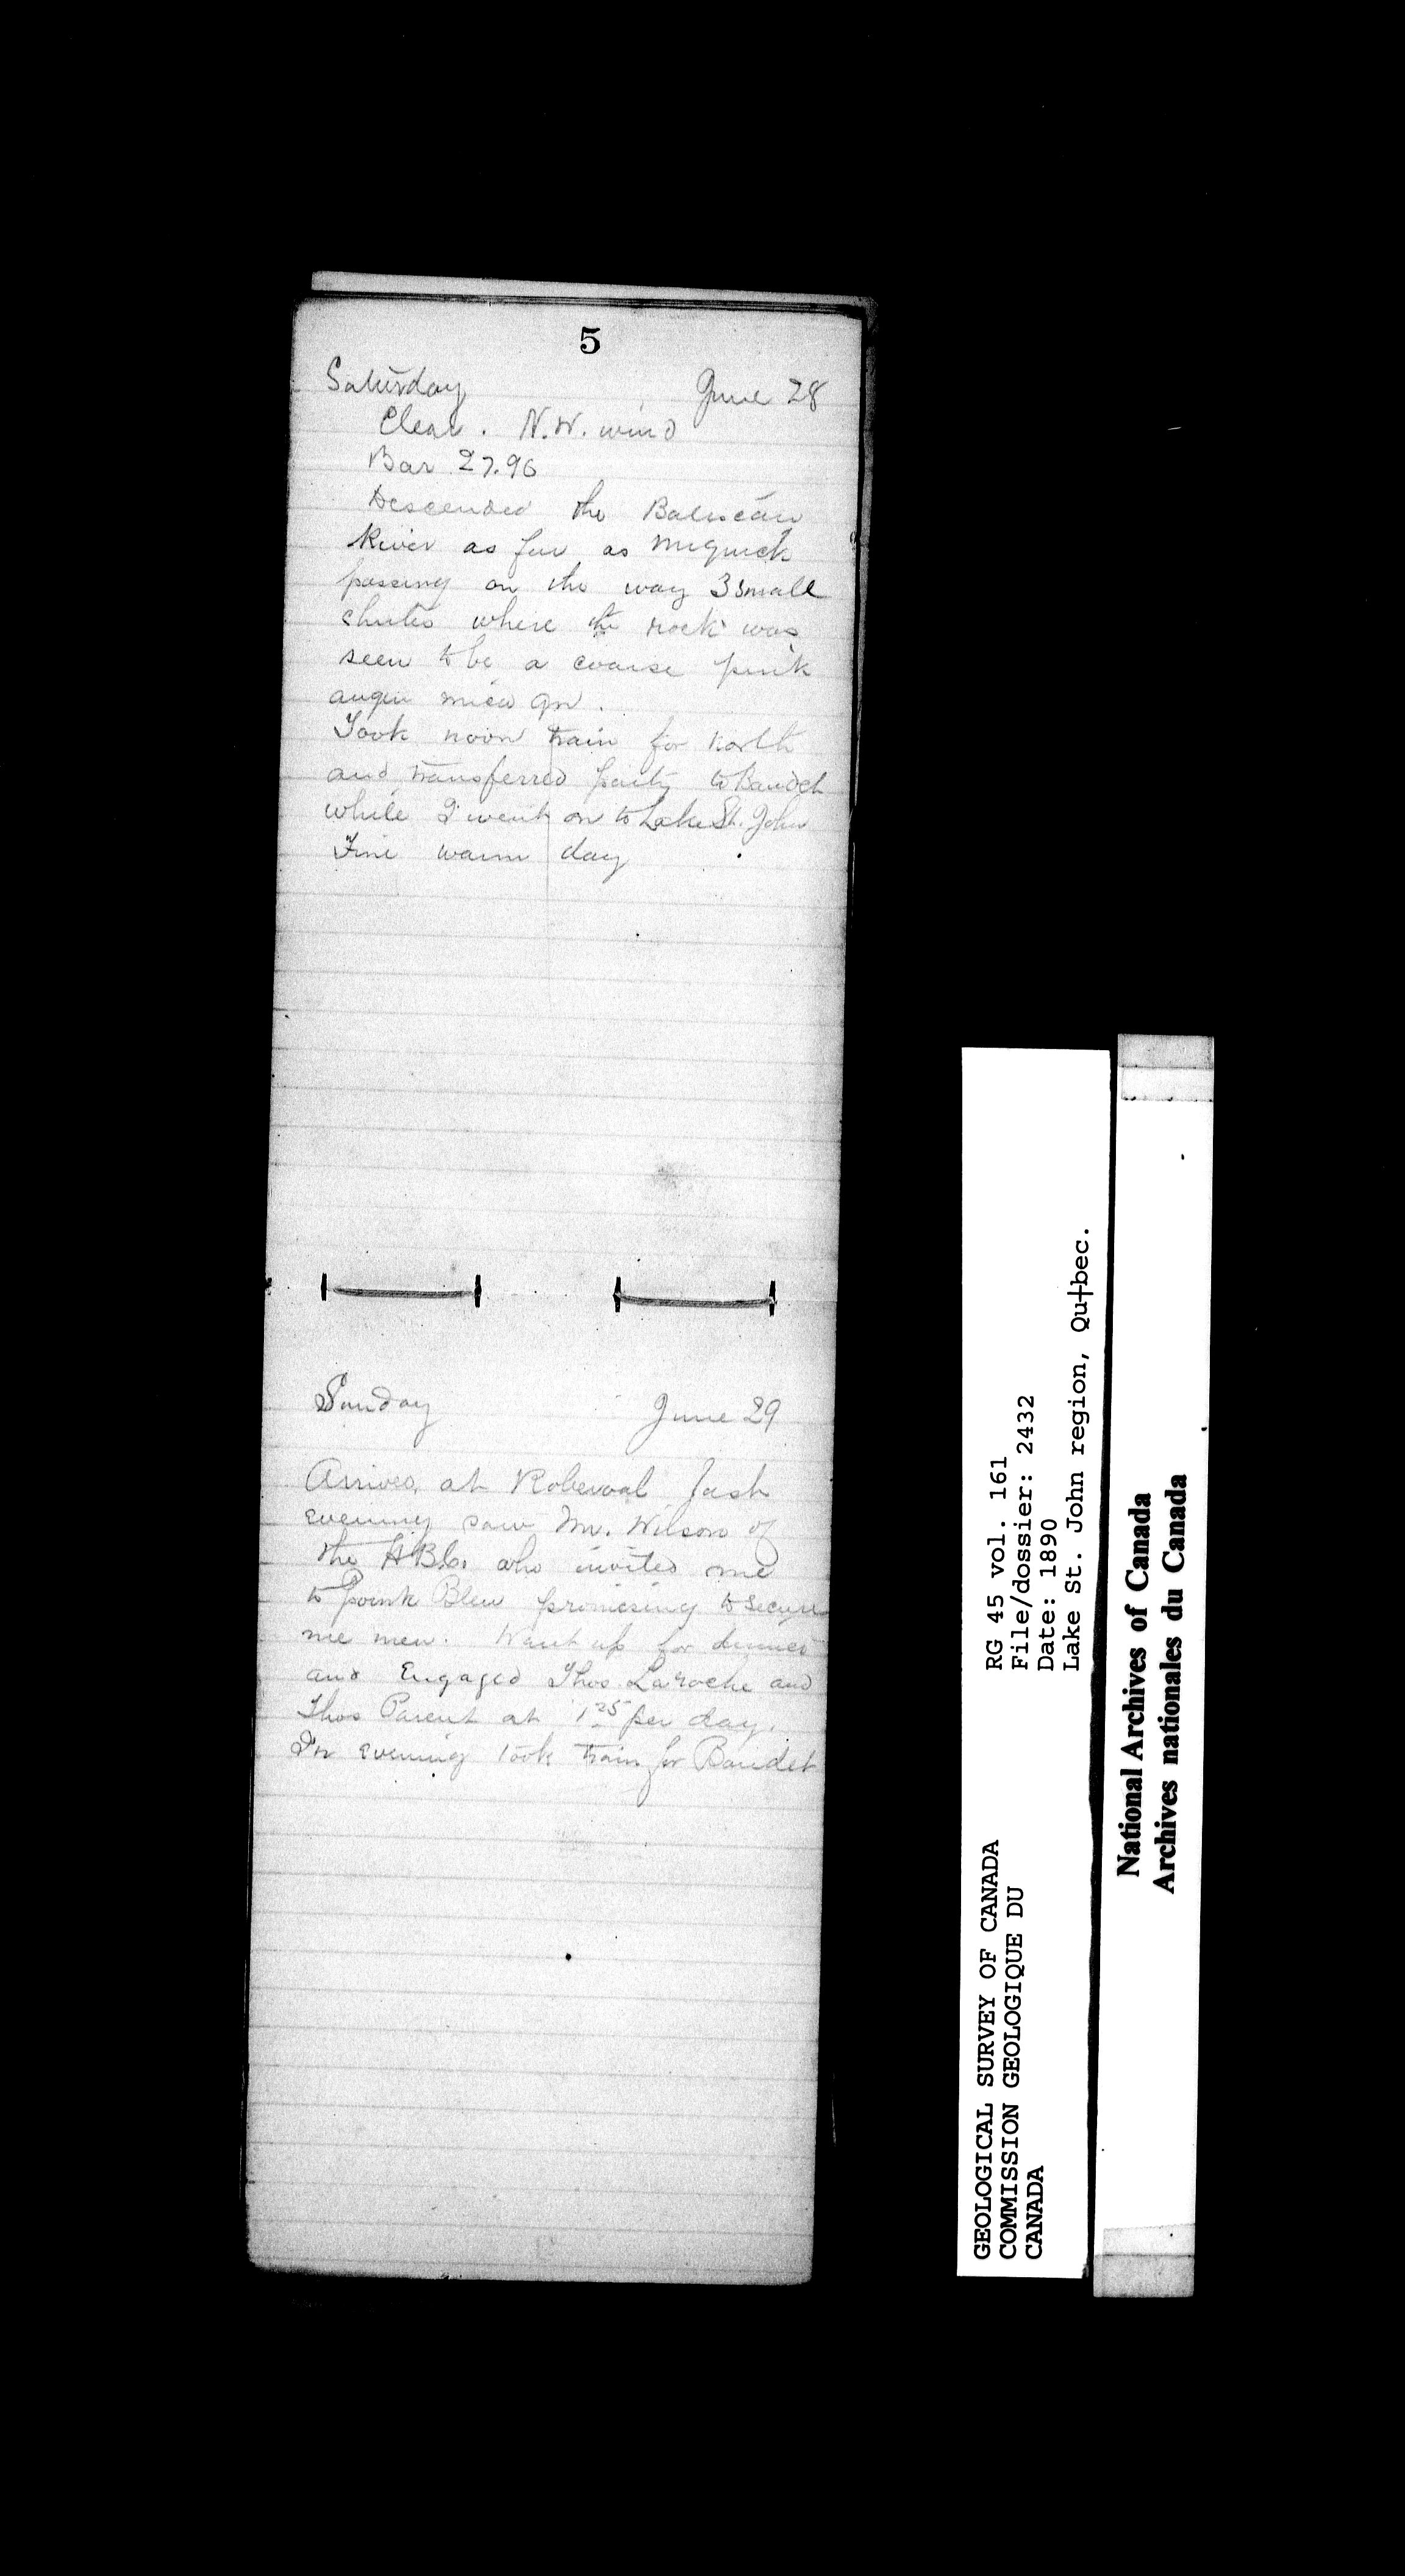 5
Saturday June 28
Clear. N.W. wind
Bar 27.96
Descended the Batiscan
River as far as Miguick
passing on the way 3 small
chutes where the rock was
seen to be a coarse pink
augen mica gn.
Took noon train for north
and transferred party to Baudet
while I went on to Lake St. John
Fine warm day
Sunday June 29
Arrived at Roberval last
evening saw Mr. Wilson of
the HBCo who invited me
to Point Bleu promising to secure
me men. Went up for dinner
and Engaged Thos Laroche and
Thos Parent at 1 25 per day.
In evening took train for Baudet
GEOLOGICAL SURVEY OF CANADA
COMMISSION GEOLOGIQUE DU
CANADA
RG 45 vol. 161
File/dossier: 2432
Date: 1890
Lake St. John region, Qu†bec.
National Archives of Canada
Archives nationales du Canada